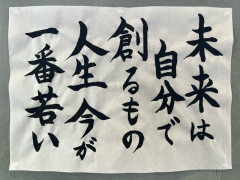 未来は
自分で
創るもの
人生今が
一番若い